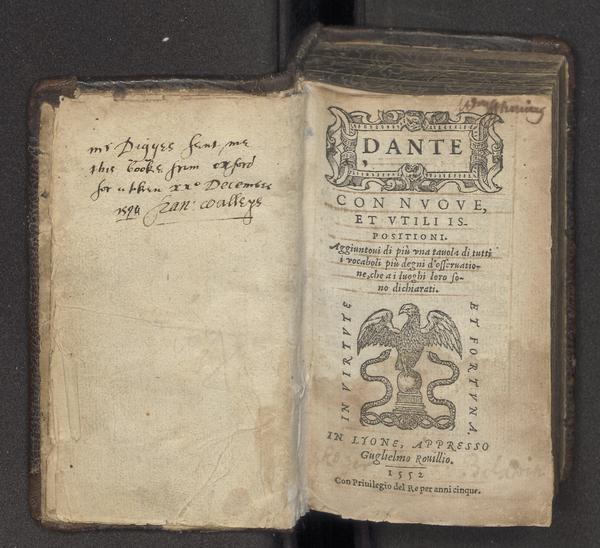 mr Digges sent me
this booke from oxford
for a token xxo Decembris
1594 Fran: Walleys
DANTE
CON NVOVE,
ET VTILI IS-
POSITIONI.
Aggiuntoui di più vna tauola di tutti
i vocaboli più degni d'osseruatio-
ne, che a i luoghi loro so-
no dichiarati.
IN VIRTVTE
ET FORTVNA.
IN LYONE, APPRESSO
Guglielmo Rouillio.
1552
Con Priuilegio del Re per anni cinque.